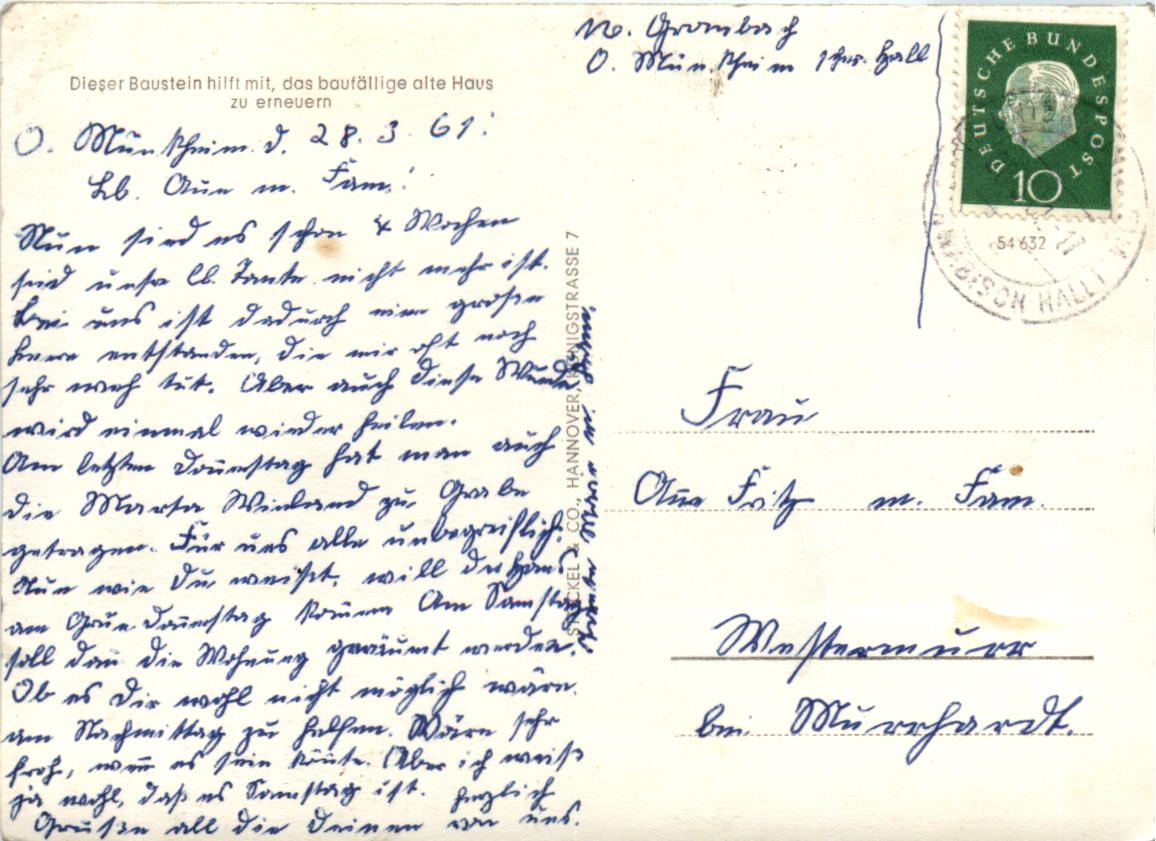 Dieser Baustein hilft mit, das baufällige alte Haus
zu erneuern
O. Münkheim d. 28.3.61.
Lb. Aue m. Fam.!
Nun sind es schon 4 Wochen
seid unsre lb. Tante nicht mehr ist.
Bei uns ist dadurch eine große
Leere entstanden, die mir oft noch
sehr weh tut. Aber auch diese Wunde
wird einmal wieder heilen.
Am letzten Donnerstag hat man auch
die Marta Wieland zu Grabe
getragen. Für uns alle unbegreiflich.
Nun wie Du weißt, will der Hans
am Grün Donnerstag kommen Am Samstag
soll dan die Wohnung geräumt werden.
Ob es Dir wohl nicht möglich wäre
am Nachmittag zu helfen. Wäre sehr
froh, wenn es sein könnte. Aber ich weiß
ja wohl, daß es Samstag ist. herzlich
Grüße all die Deinen von uns.
Tante Marie m. Fam.
STÜCKEL & CO., HANNOVER, KÖNIGSTRASSE 7
W. Gronbach
O. Münkheim Schw. Hall
DEUTSCHE BUNDESPOST
10
54632
SCHWÄBISCH HALL
Frau
Aue Fritz m. Fam.
Westermurr
bei Murrhardt.